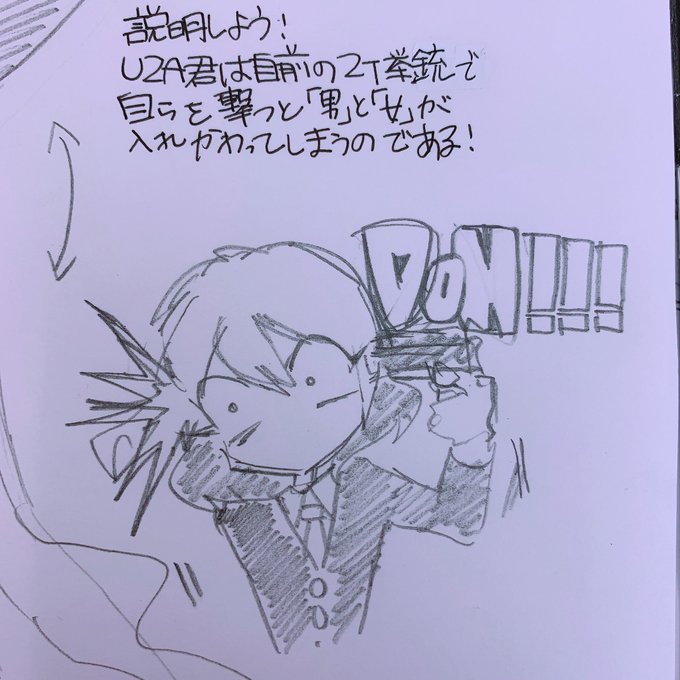 説明しよう!
UZA君は自前のZT拳銃で
自らを撃つと「男」と「女」が
入れかわってしまうのである!
DON!!!